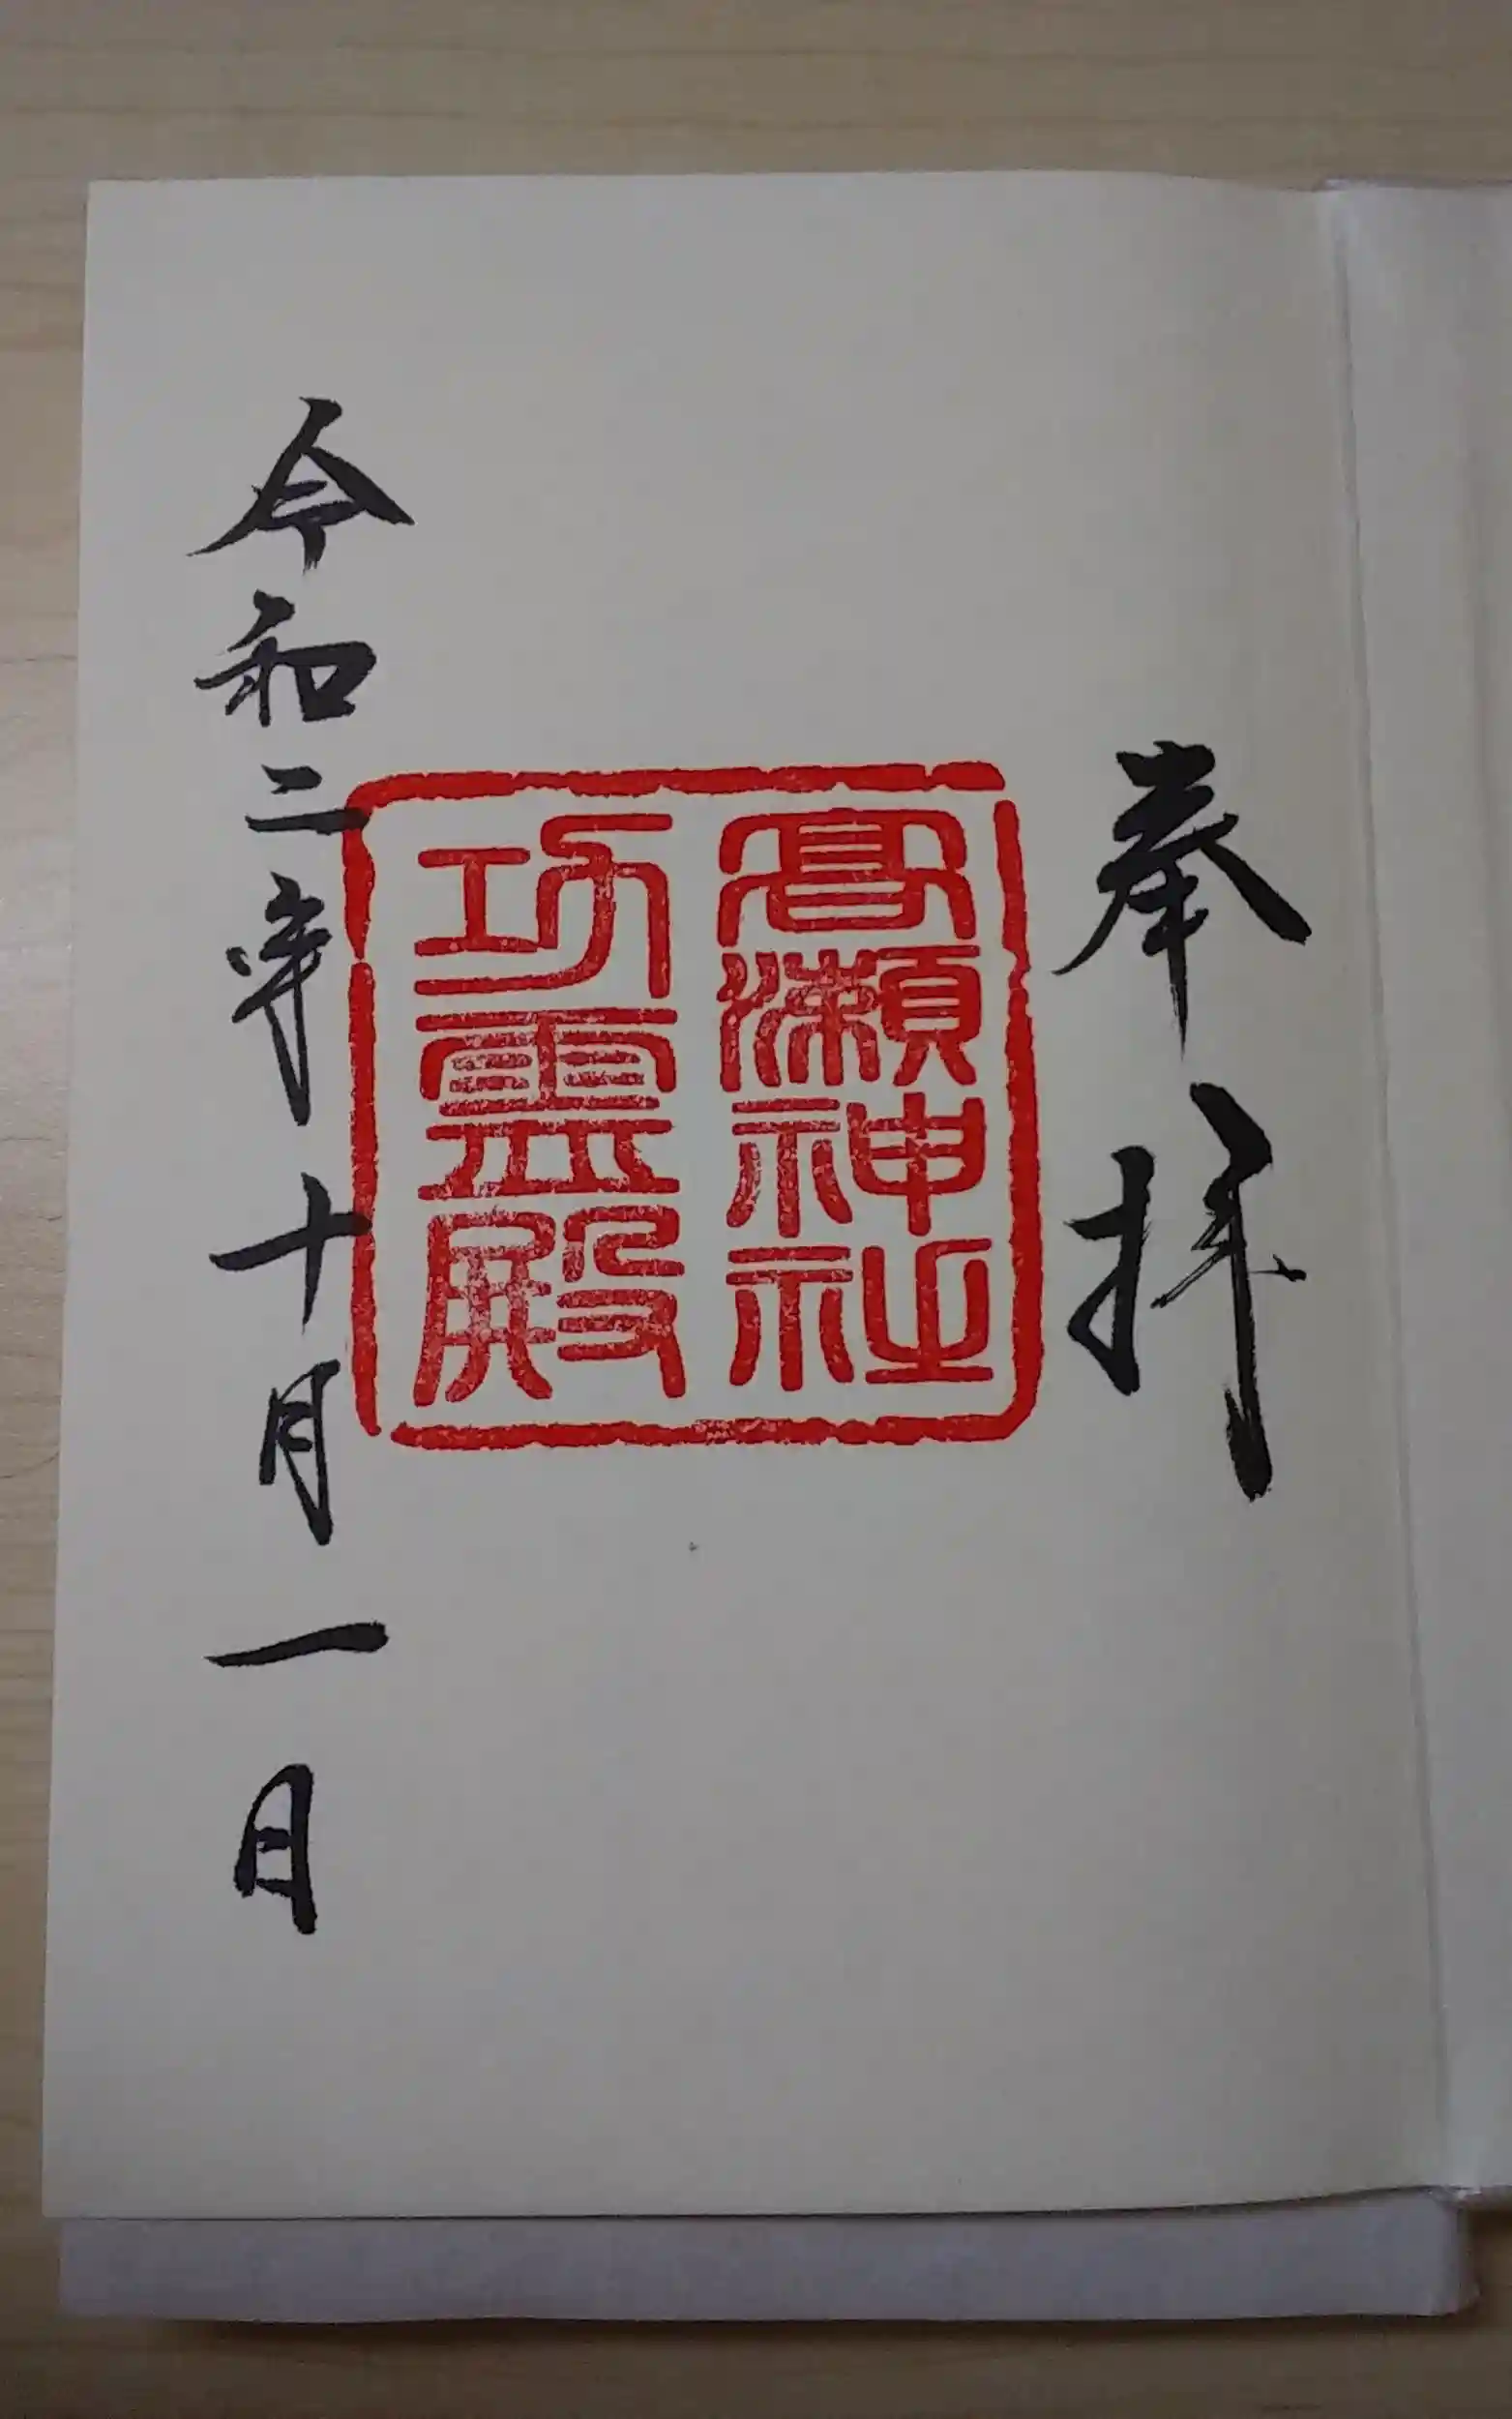 奉拝
高瀬神社
功霊殿
令和二年十月一日